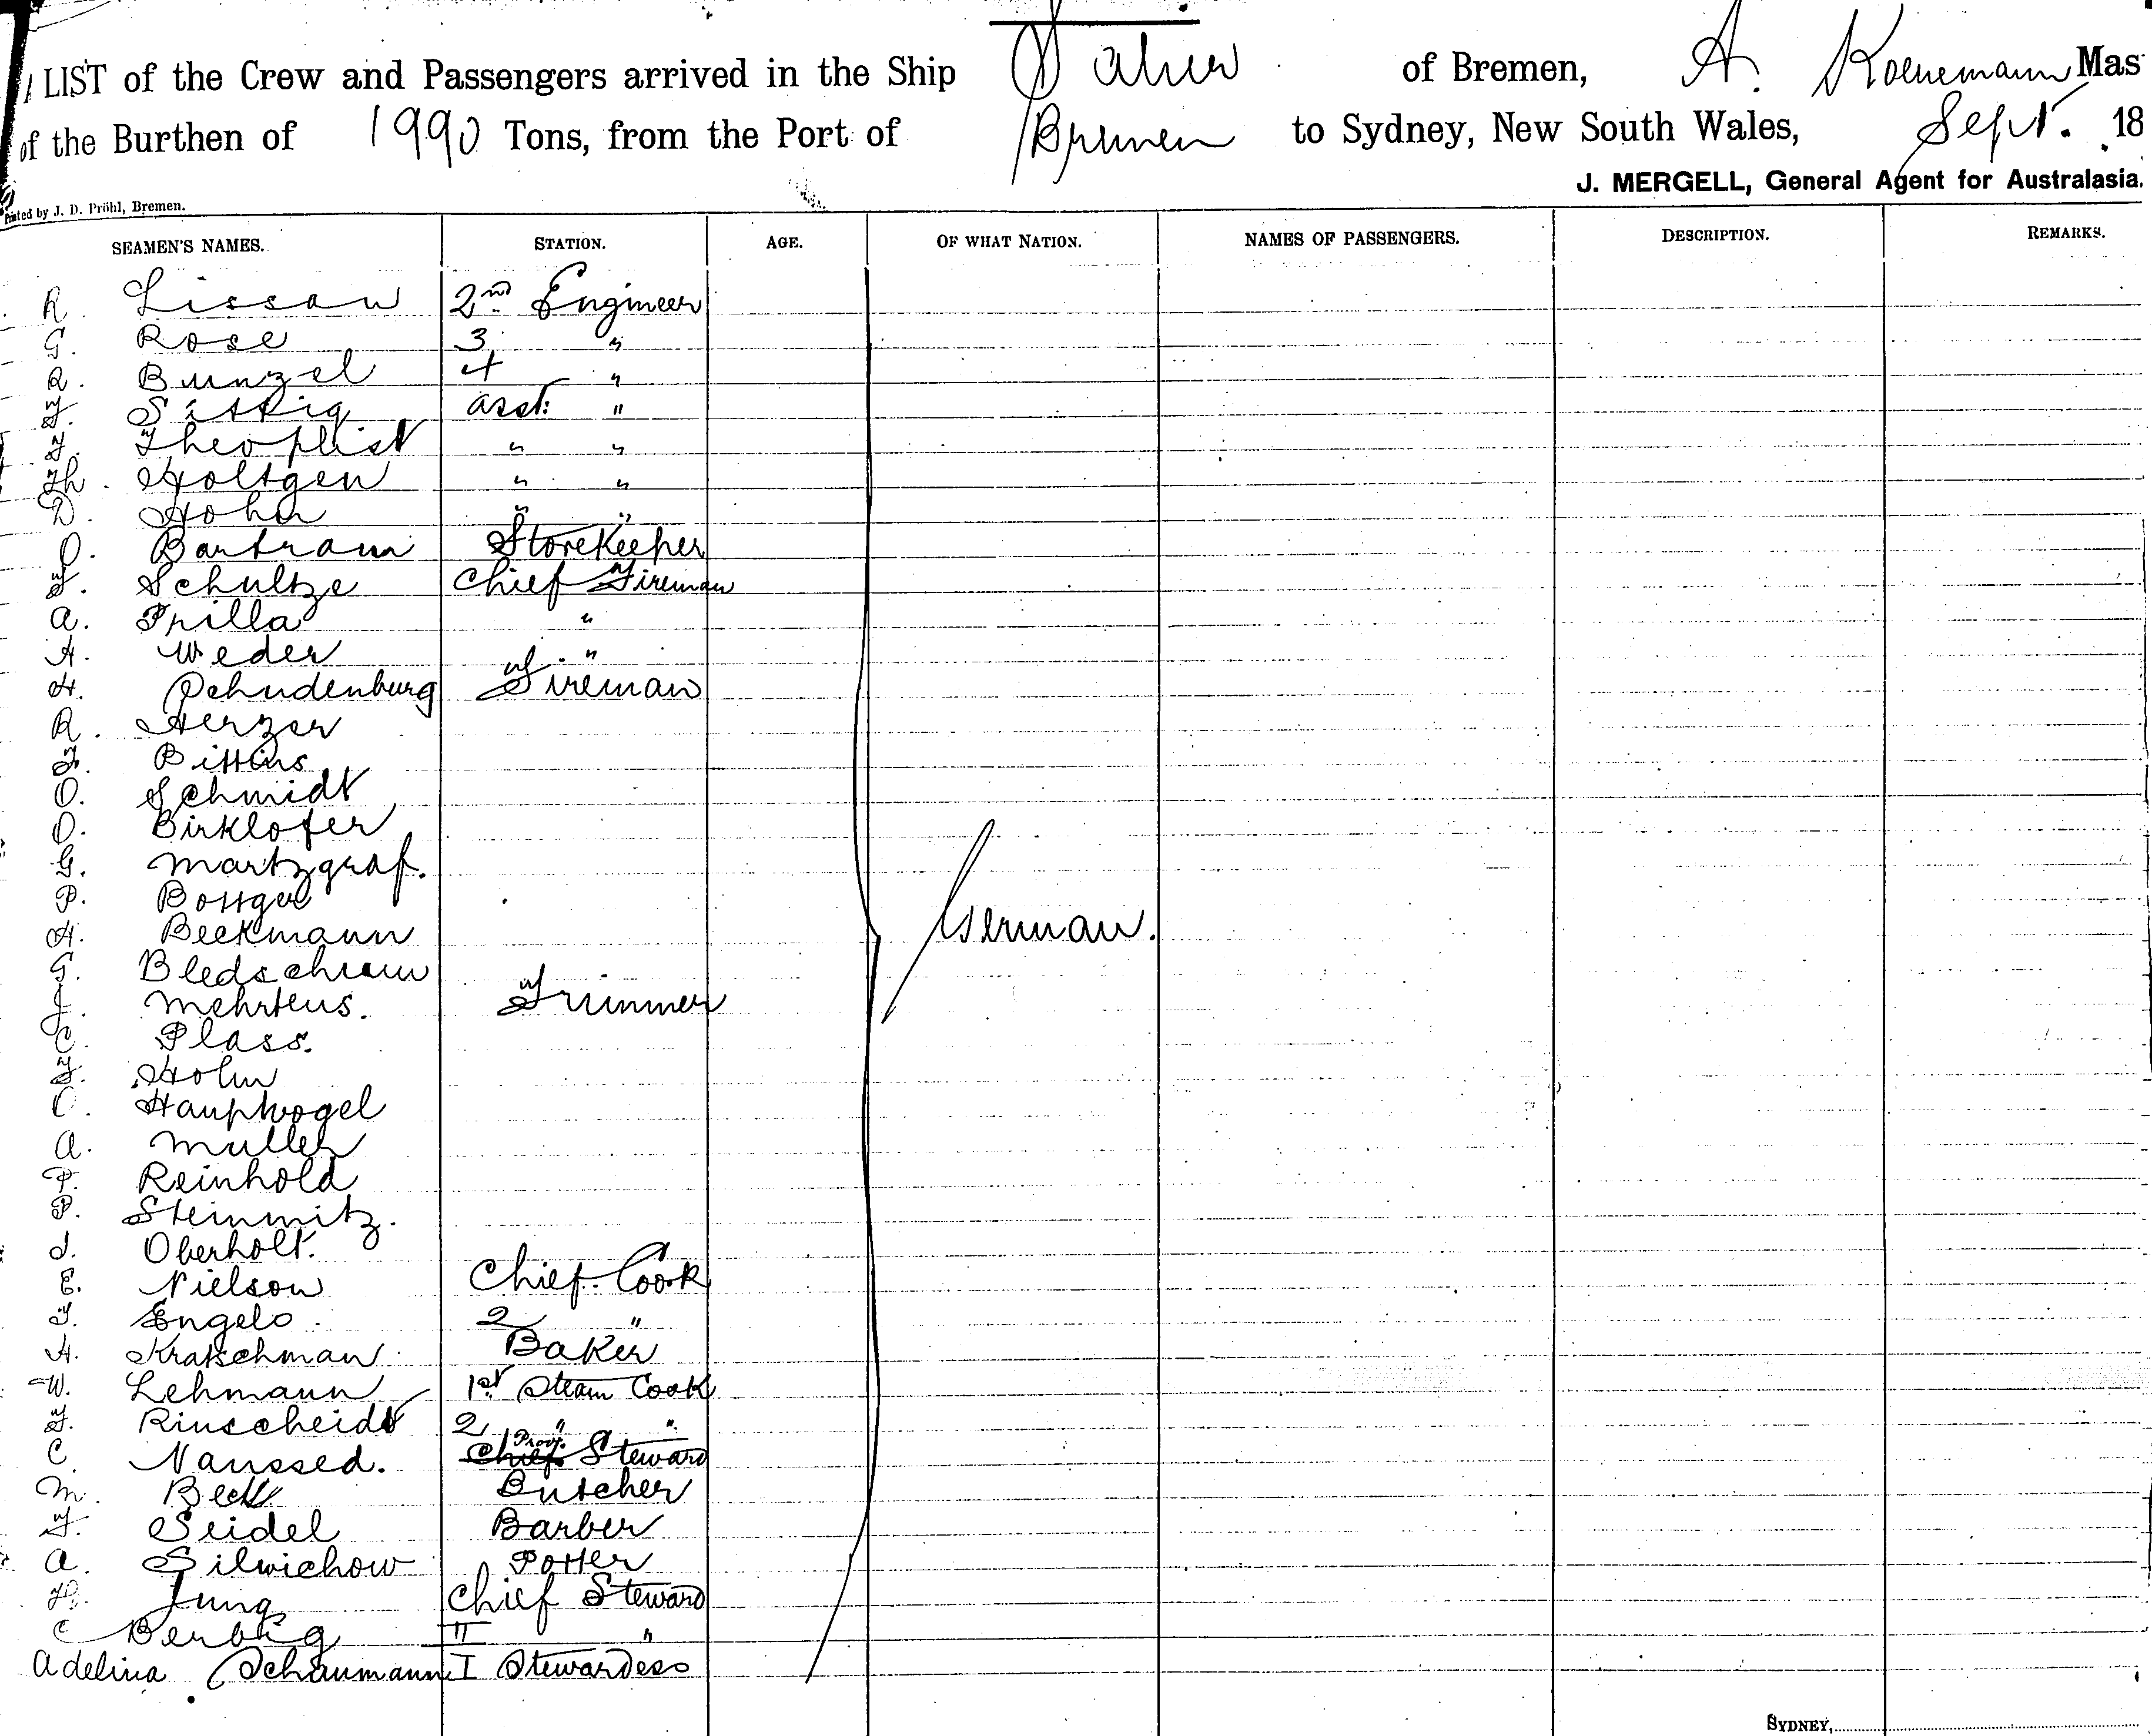 LIST of the Crew and Passengers arrived in the Ship of Bremen, A. Koenemann Mas
of the Burthen of 1990 Tons, from the Port of Bremen to Sydney, New South Wales, Sept. 18
J. MERGELL, General Agent for Australasia.
Printed by J. D. Pröhl, Bremen.
SEAMEN'S NAMES. STATION. AGE. OF WHAT NATION. NAMES OF PASSENGERS. DESCRIPTION. REMARKS.
R. Lissow 2nd Engineer
G. Rose 3 "
R. Bunzel 4 "
F. Sittig asst: "
F. Theophist " "
Th. Holtgen " "
D. Hohn " "
O. Bartram Storekeeper
F. Schultze Chief Fireman
A. Prilla "
H. Weder "
H. Fireman
R. Herzer
F. Bittins
O. Schmidt
O. Birklofer
G. Martzgraf.
P. Bottger
H. Beckmann German.
G.
J. Mehrtens. Trimmer
C. Plass.
F. Holm
O. Hauptvogel
A. Muller
P. Reinhold
P. Steinmitz.
J. Oberholt.
E. Nielson Chief Cook
F. Engelo 2 "
H. Kratschman Baker
W. Lehmann 1st Steam Cook
F. Rinscheidt 2 " "
C. Naussed. Chief Prov. Steward
M. Beck Butcher
F. Seidel Barber
A. Silwichow Porter
H. Jung Chief Steward
C Berbig II "
Adelina Schaumann I Stewardess
SYDNEY,